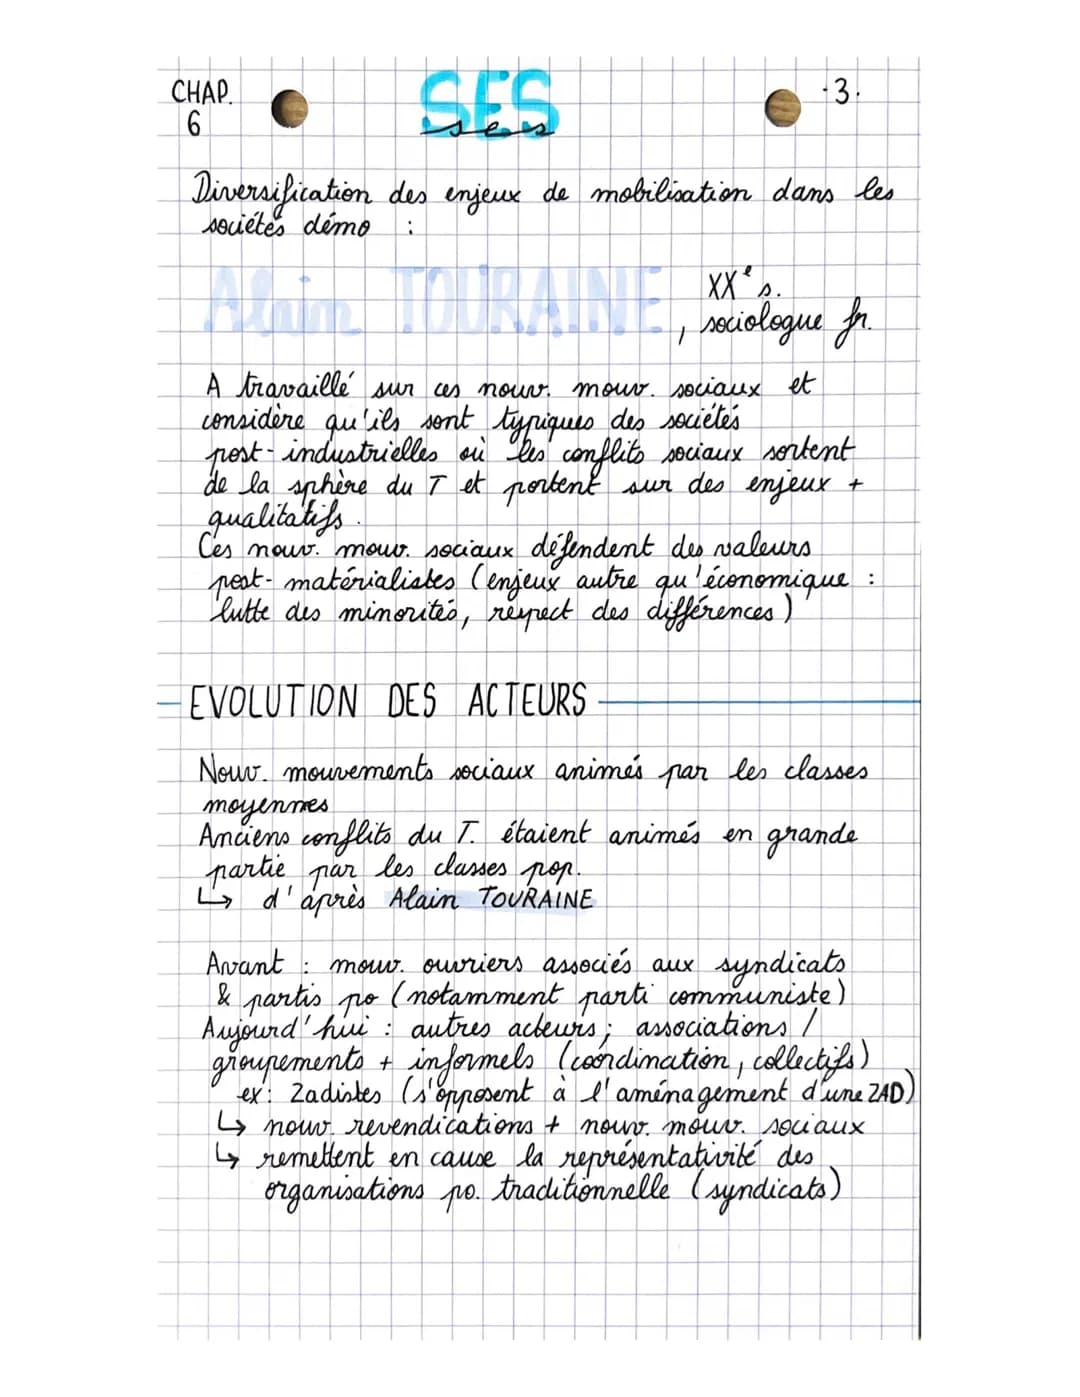 CHAP.
6
SES
ses
.3.
Diversification des enjeux de mobilisation dans les
sociétés démo :
Alain TOURAINE, XXe s.
sociologue fr.
A travaillé sur ces nouv. mouv. sociaux et
considère qu'ils sont typiques des sociétés
post-industrielles où les conflits sociaux sortent
de la sphère du T et portent sur des enjeux +
qualitatifs.
Ces nouv. mouv. sociaux défendent des valeurs
post-matérialistes (enjeux autre qu'économique :
lutte des minorités, respect des différences)
EVOLUTION DES ACTEURS
Nouv. mouvements sociaux animés par les classes
moyennes
Anciens conflits du T. étaient animés en grande
partie par les classes pop.
↳ d'après Alain TOURAINE
Avant : mouv. ouvriers associés aux syndicats
& partis po (notamment parti communiste)
Aujourd'hui : autres acteurs ; associations /
groupements + informels (coordination, collectifs)
ex: Zadistes (s'opposent à l'aménagement d'une ZAD)
↳ nouv. revendications + nouv. mouv. sociaux
↳ remettent en cause la représentativité des
organisations po. traditionnelle (syndicats)